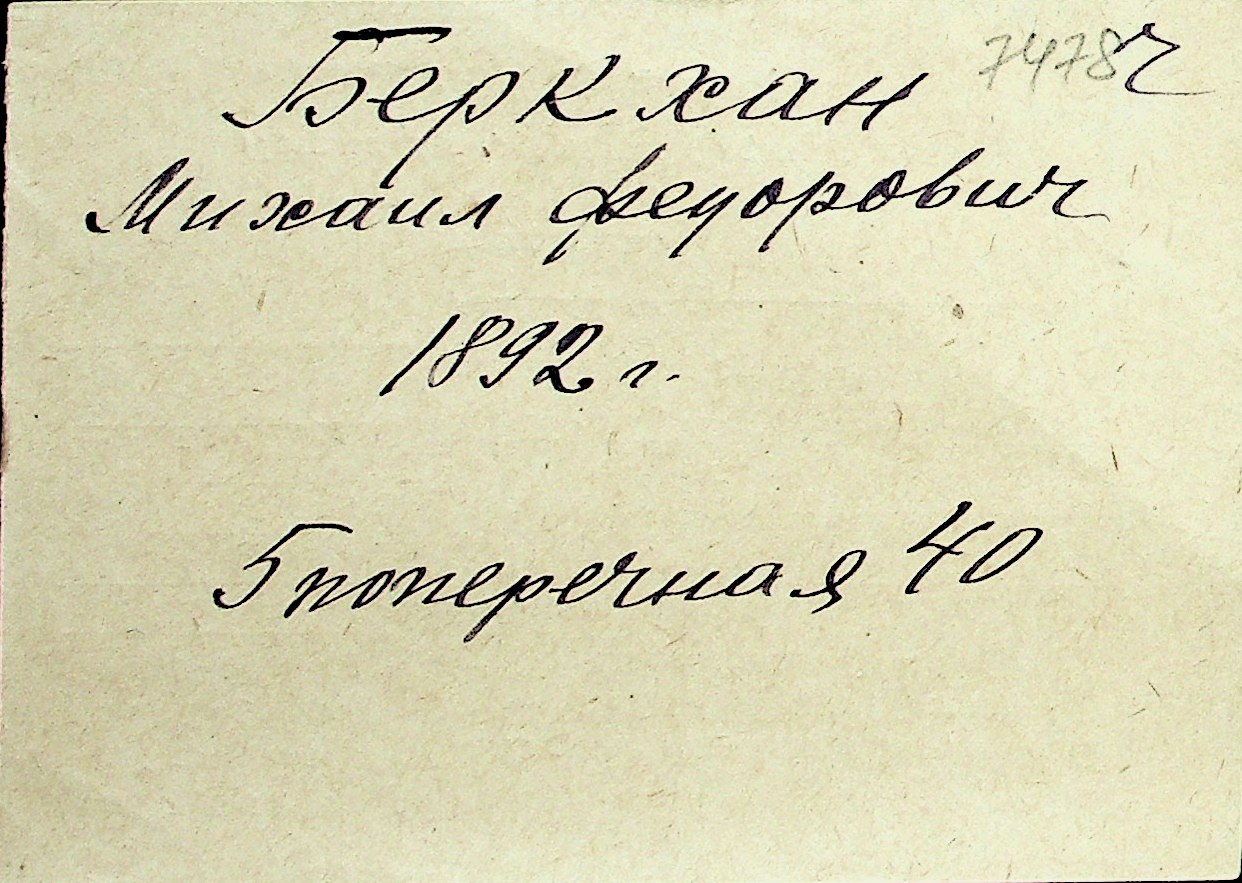 Беркхан 7478 ч
Михаил Федорович
1892 г.
5 поперечная 40